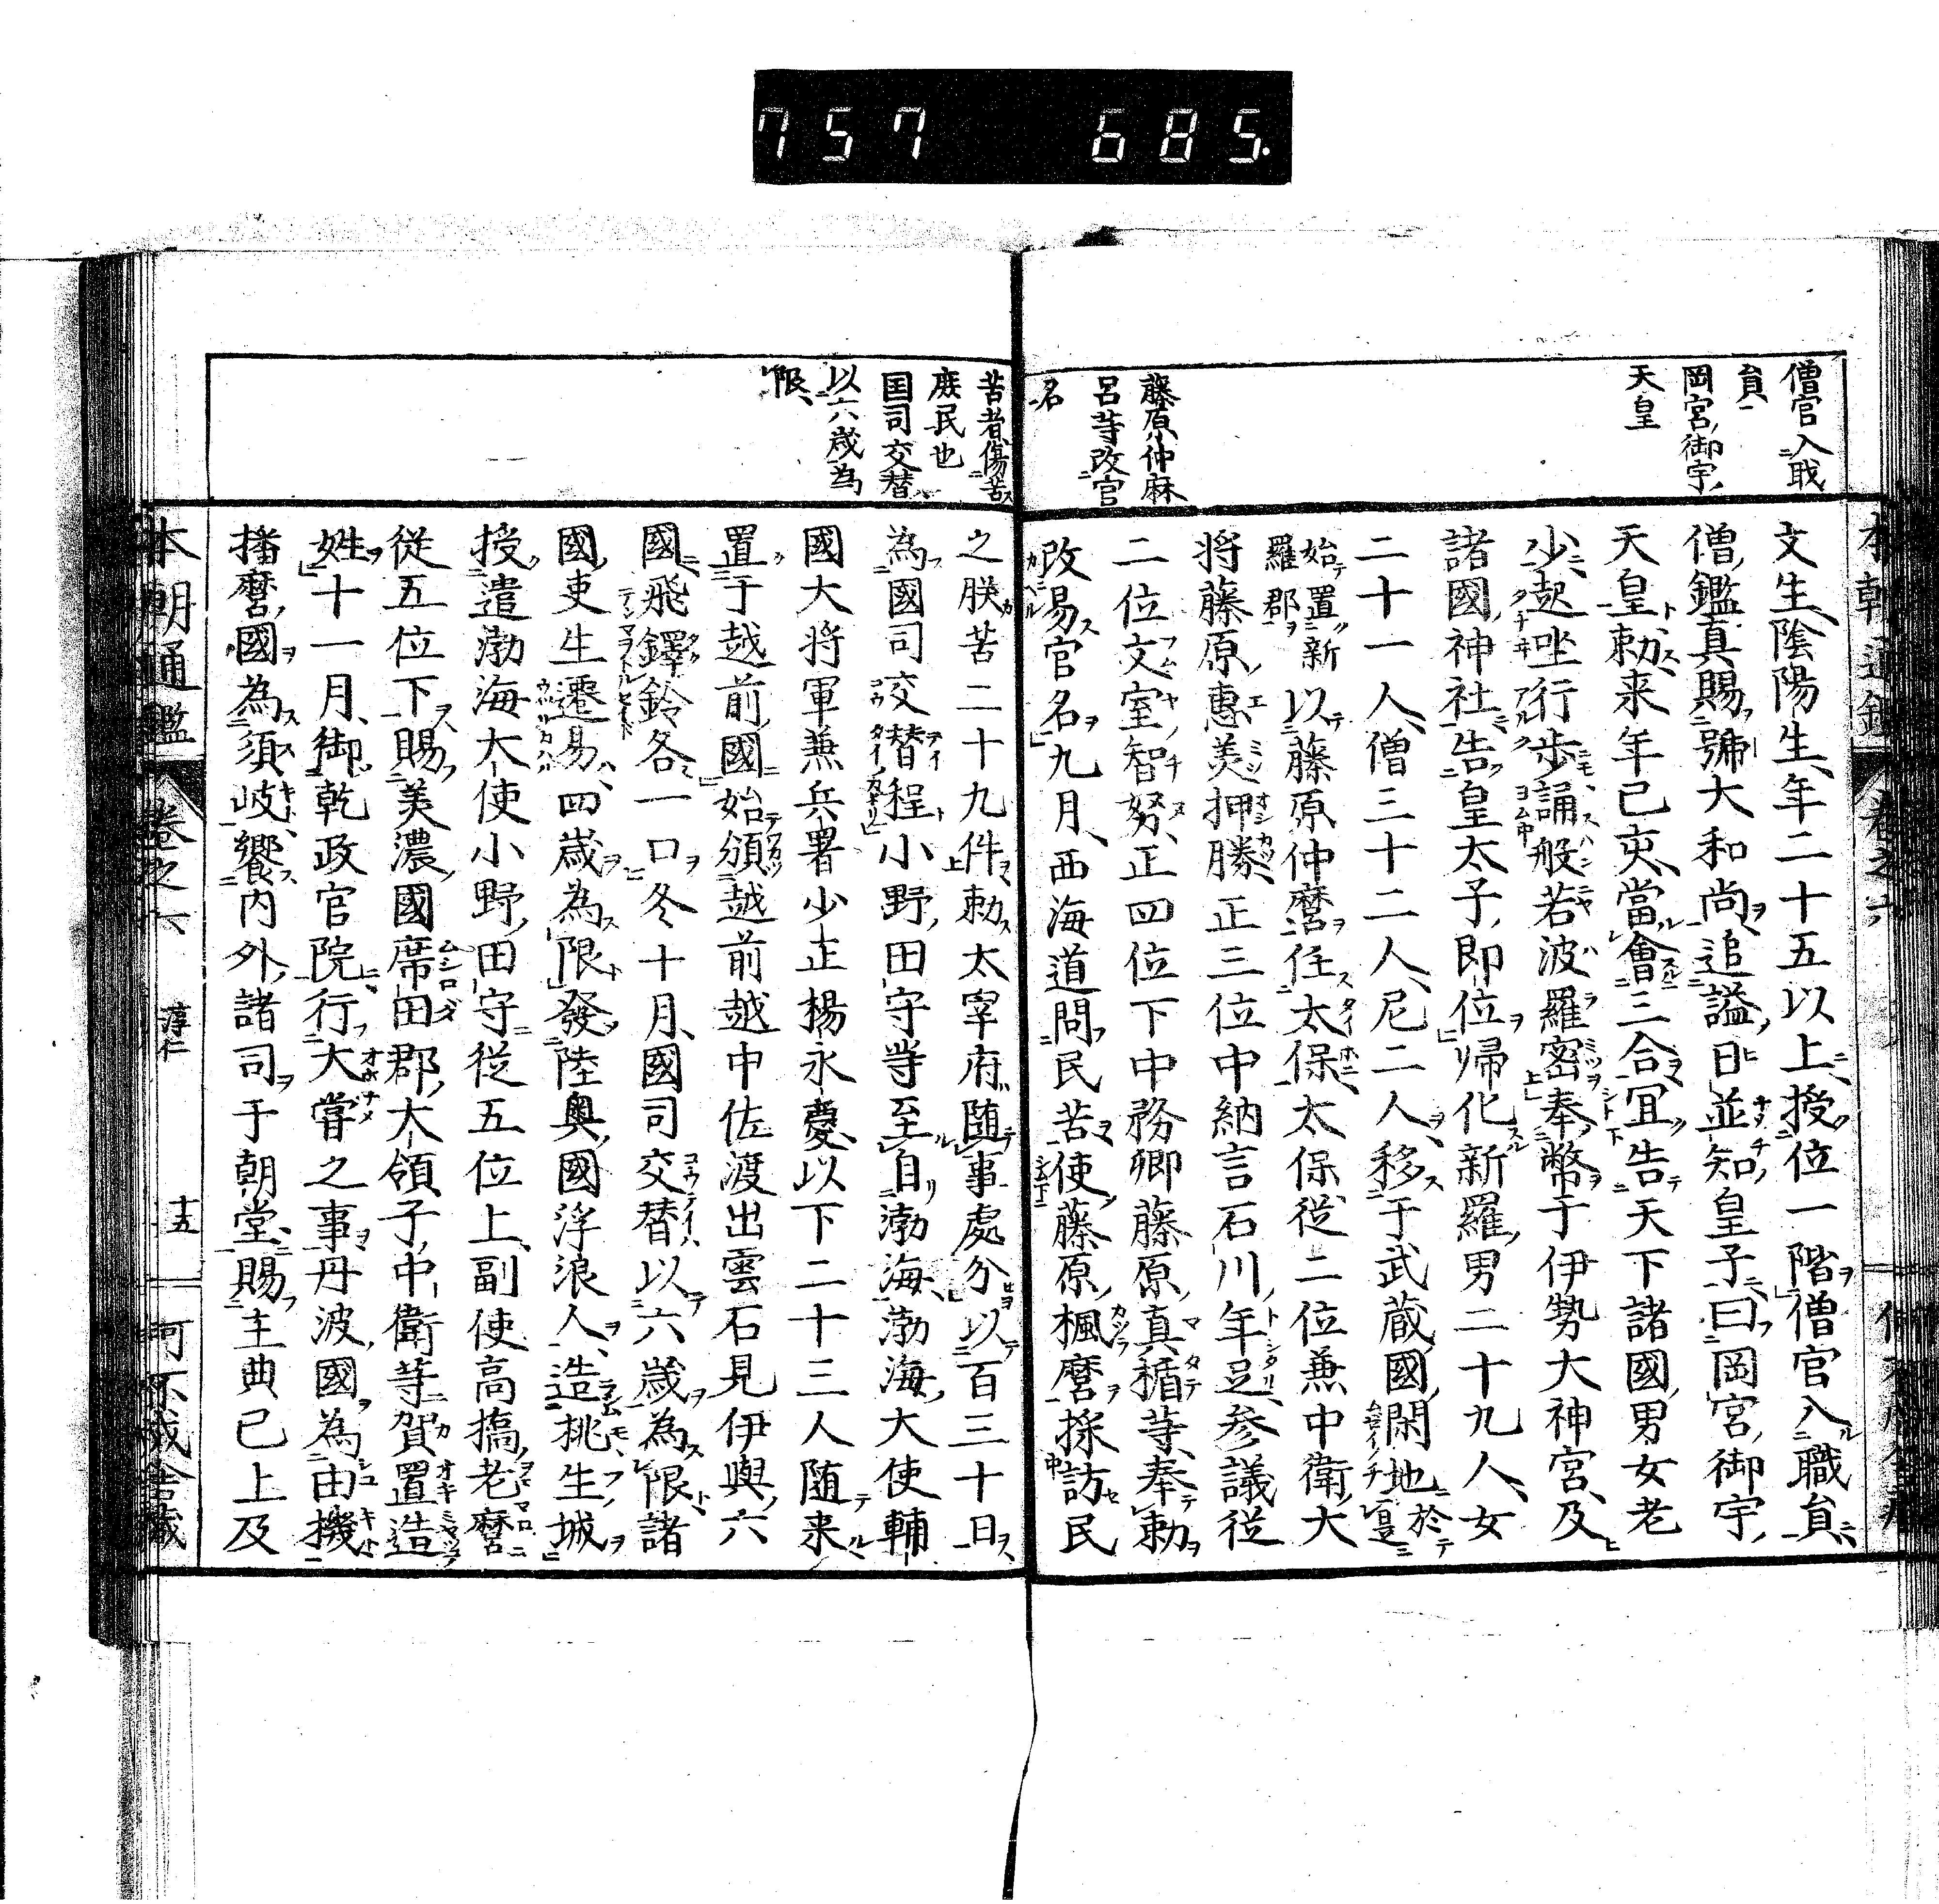 757 685.
僧官入戢
貟
岡宮御宇
天皇
藤原仲麻
呂等改官
名
文生陰陽生年二十五以上授位一階僧官入職貟
僧鑑真賜號大和尚追謚日並知皇子曰岡宮御宇
天皇勅来年己亥當會三合冝告天下諸國男女老
少起坐行歩誦般若波羅密奉幣于伊勢大神宮及
諸國神社告皇太子即位帰化新羅男二十九人女
二十一人僧三十二人尼二人移于武蔵國閑地於是
始置新
羅郡
以藤原仲麿任太保太保従二位兼中衛大
将藤原惠美押勝正三位中納言石川年足参議従
二位文室智努正四位下中務卿藤原真楯等奉勅
改易官名九月西海道問民苦使藤原楓麿採訪民
苦者傷苦
疾民也
国司交替
以六歳為
限
之朕苦二十九件勅太宰府随事處分以百三十日
為國司交替程小野田守等至自渤海渤海大使輔
國大将軍兼兵署少正楊永慶以下二十三人随来
置于越前國始頒越前越中佐渡出雲石見伊與六
國飛鐸鈴各一口冬十月國司交替以六歳為限諸
國吏生遷易四歳為限發陸奥國浮浪人造桃生城
授遣渤海大使小野田守従五位上副使高橋老麿
従五位下賜美濃國席田郡大領子中衛等賀置造
姓十一月御乾政官院行大嘗之事丹波國為由機
播磨國為須岐饗内外諸司于朝堂賜主典已上及
本朝通鑑
卷之六
淳仁
十五